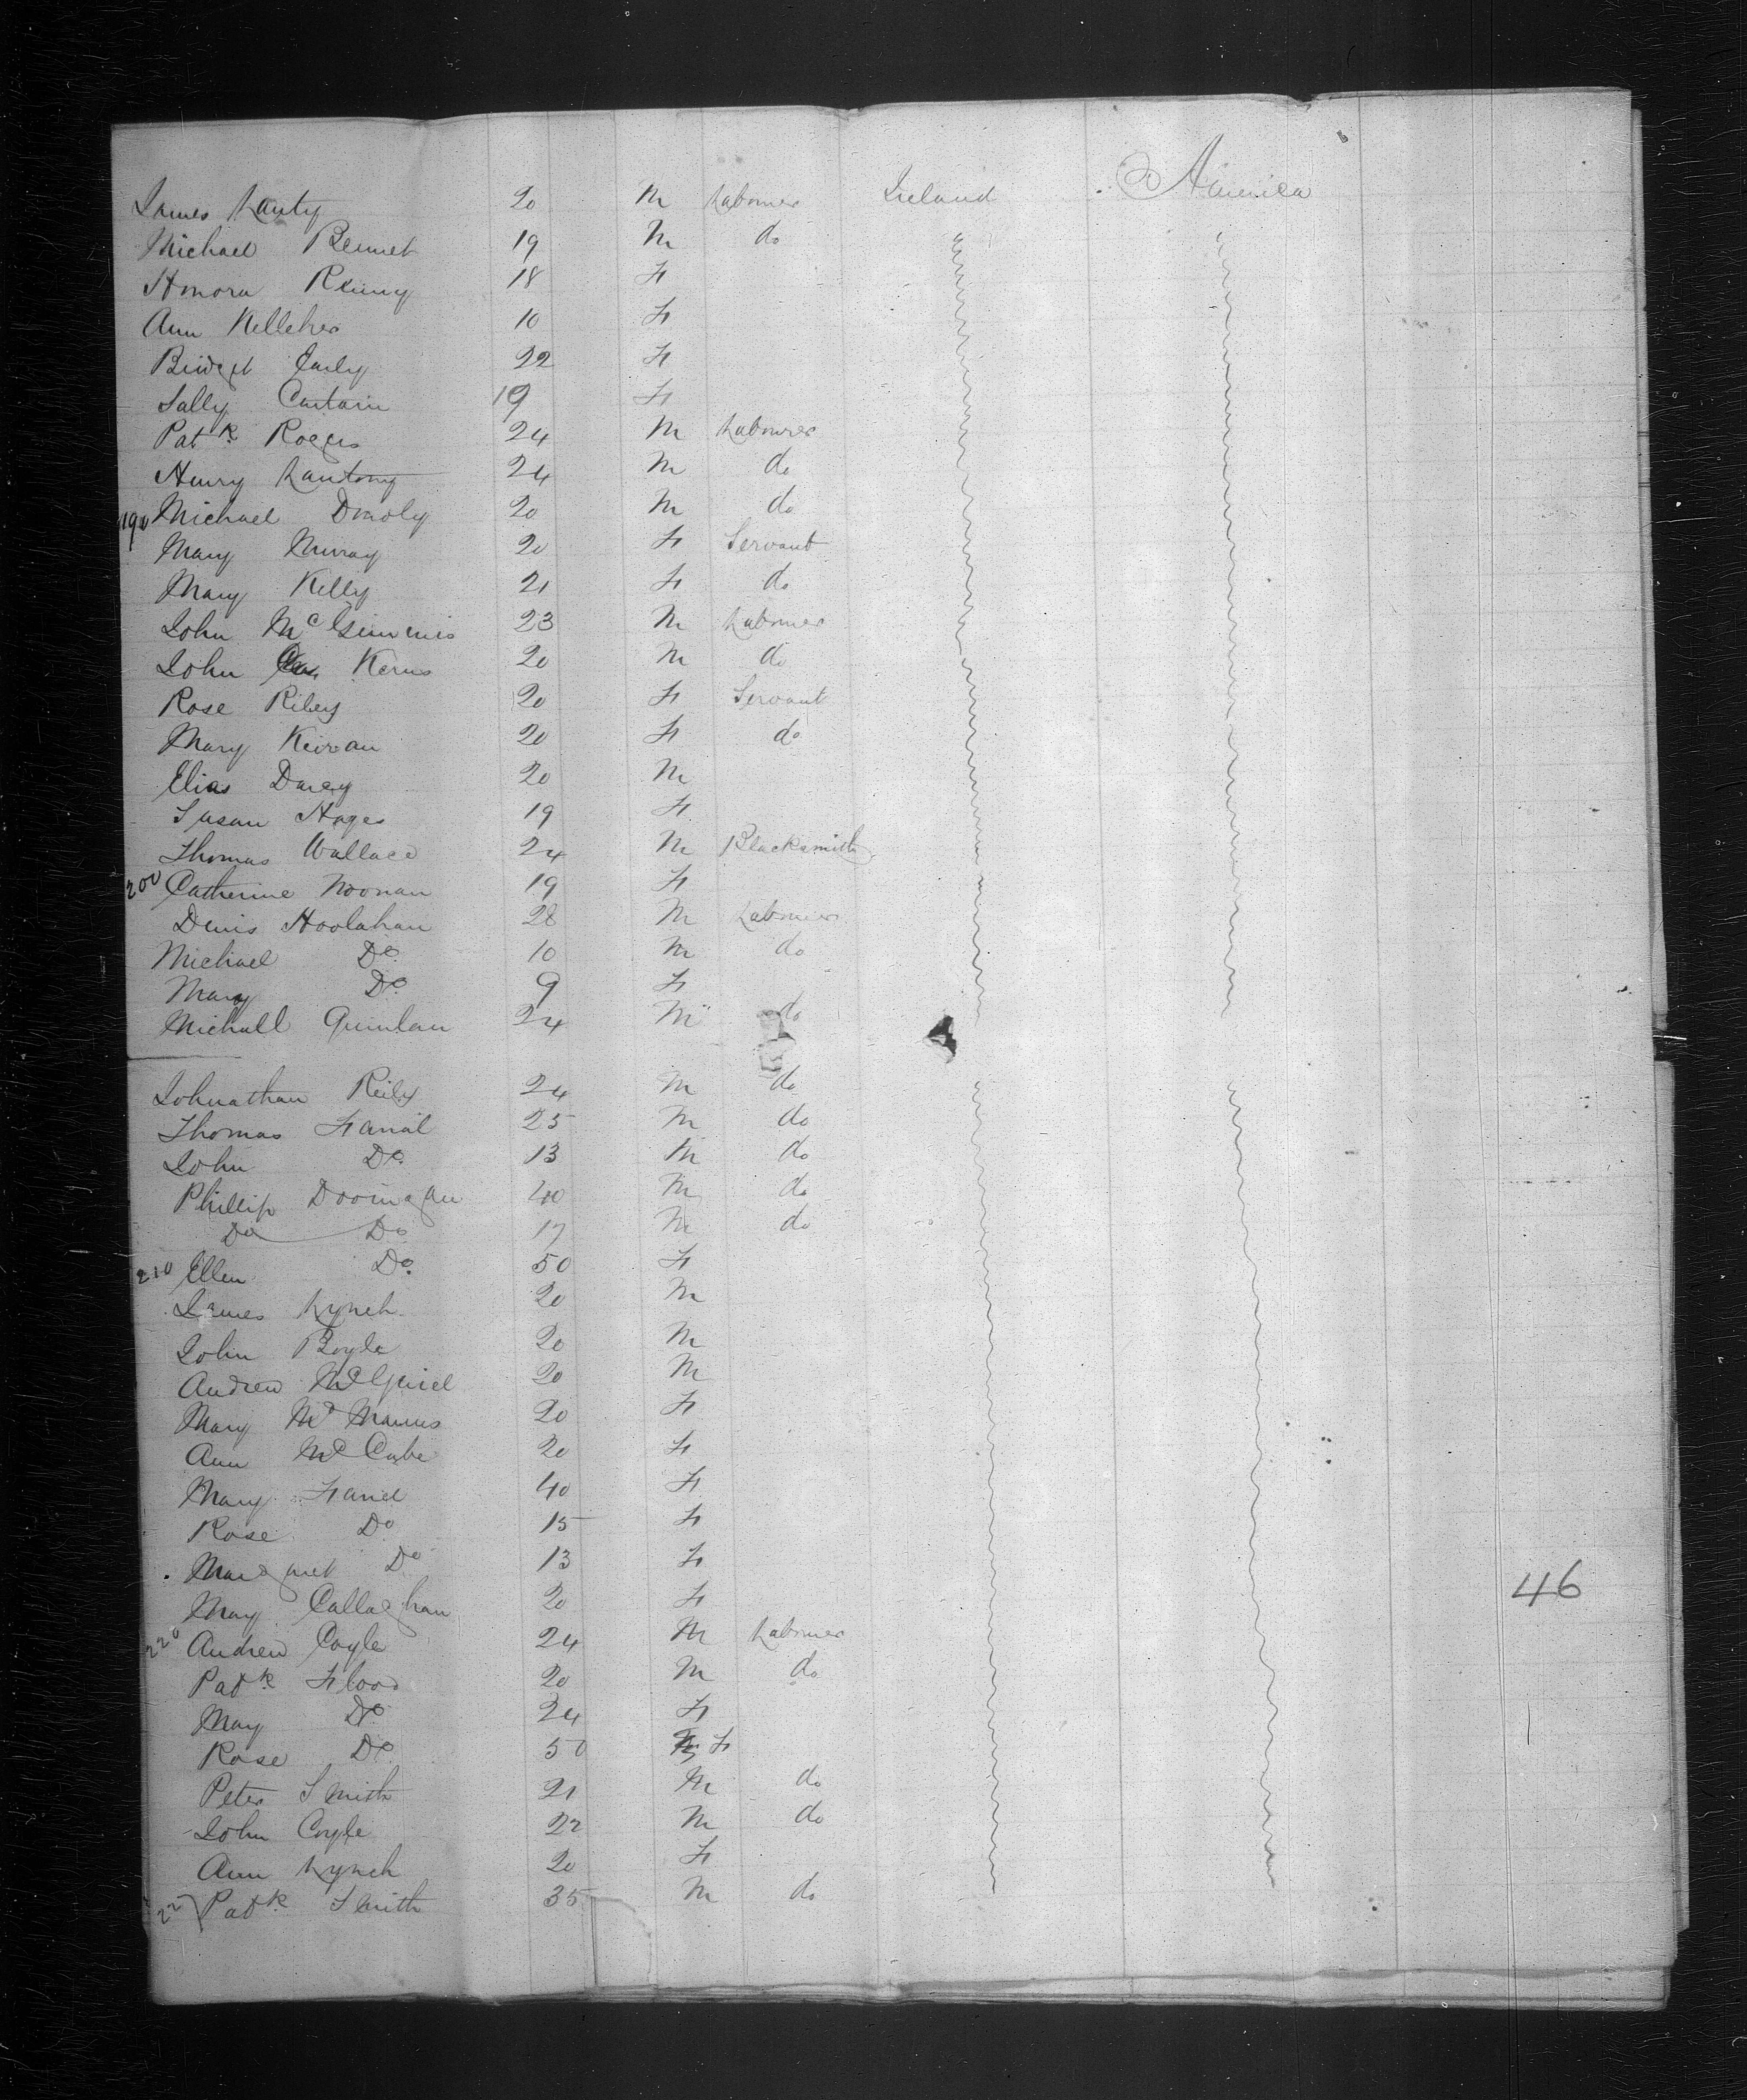 James Lanty 20 M Labourer Ireland America
Michael Bennet 19 M do
Honora Reiny 18 F
Ann Kelleher 10 F
Bridget Early 22 F
Sally Curtain 19 F
Patk Rogers 24 M Labourer
Henry 24 M do
190 Michael 20 M do
Mary Murray 20 F Servant
Mary Kelly 21 F do
John McGinnis 23 M Labourer
John Kerns 20 M do
Rose Riley 20 F Servant
Mary Keiran 20 F do
Elias Darcy 20 M
Susan Hayes 19 F
Thomas Wallace 24 M Blacksmith
200 Catherine Noonan 19 F
Denis Hoolahan 28 M Labourer
Michael Do 10 M do
Mary Do 9 F
Michall Quinlan 24 M do
Johnathan Reily 24 M do
Thomas 25 M do
John Do 13 M do
Phillip 40 M do
Do Do 17 M do
210 Ellen Do 50 F
James Lynch 20 M
John Boyle 20 M
Andrew 20 M
Mary McManus 20 F
Ann McCabe 20 F
Mary 40 F
Rose Do 15 F
Margaret Do 13 F
Mary Callaghan 20 F
220 Andrew Coyle 24 M Labourer
Patk Flood 20 M do
May Do 24 F
Rose Do 50 F
Peter Smith 21 M do
John Coyle 22 M do
Ann Lynch 20 F
Patk Smith 35 M do
46